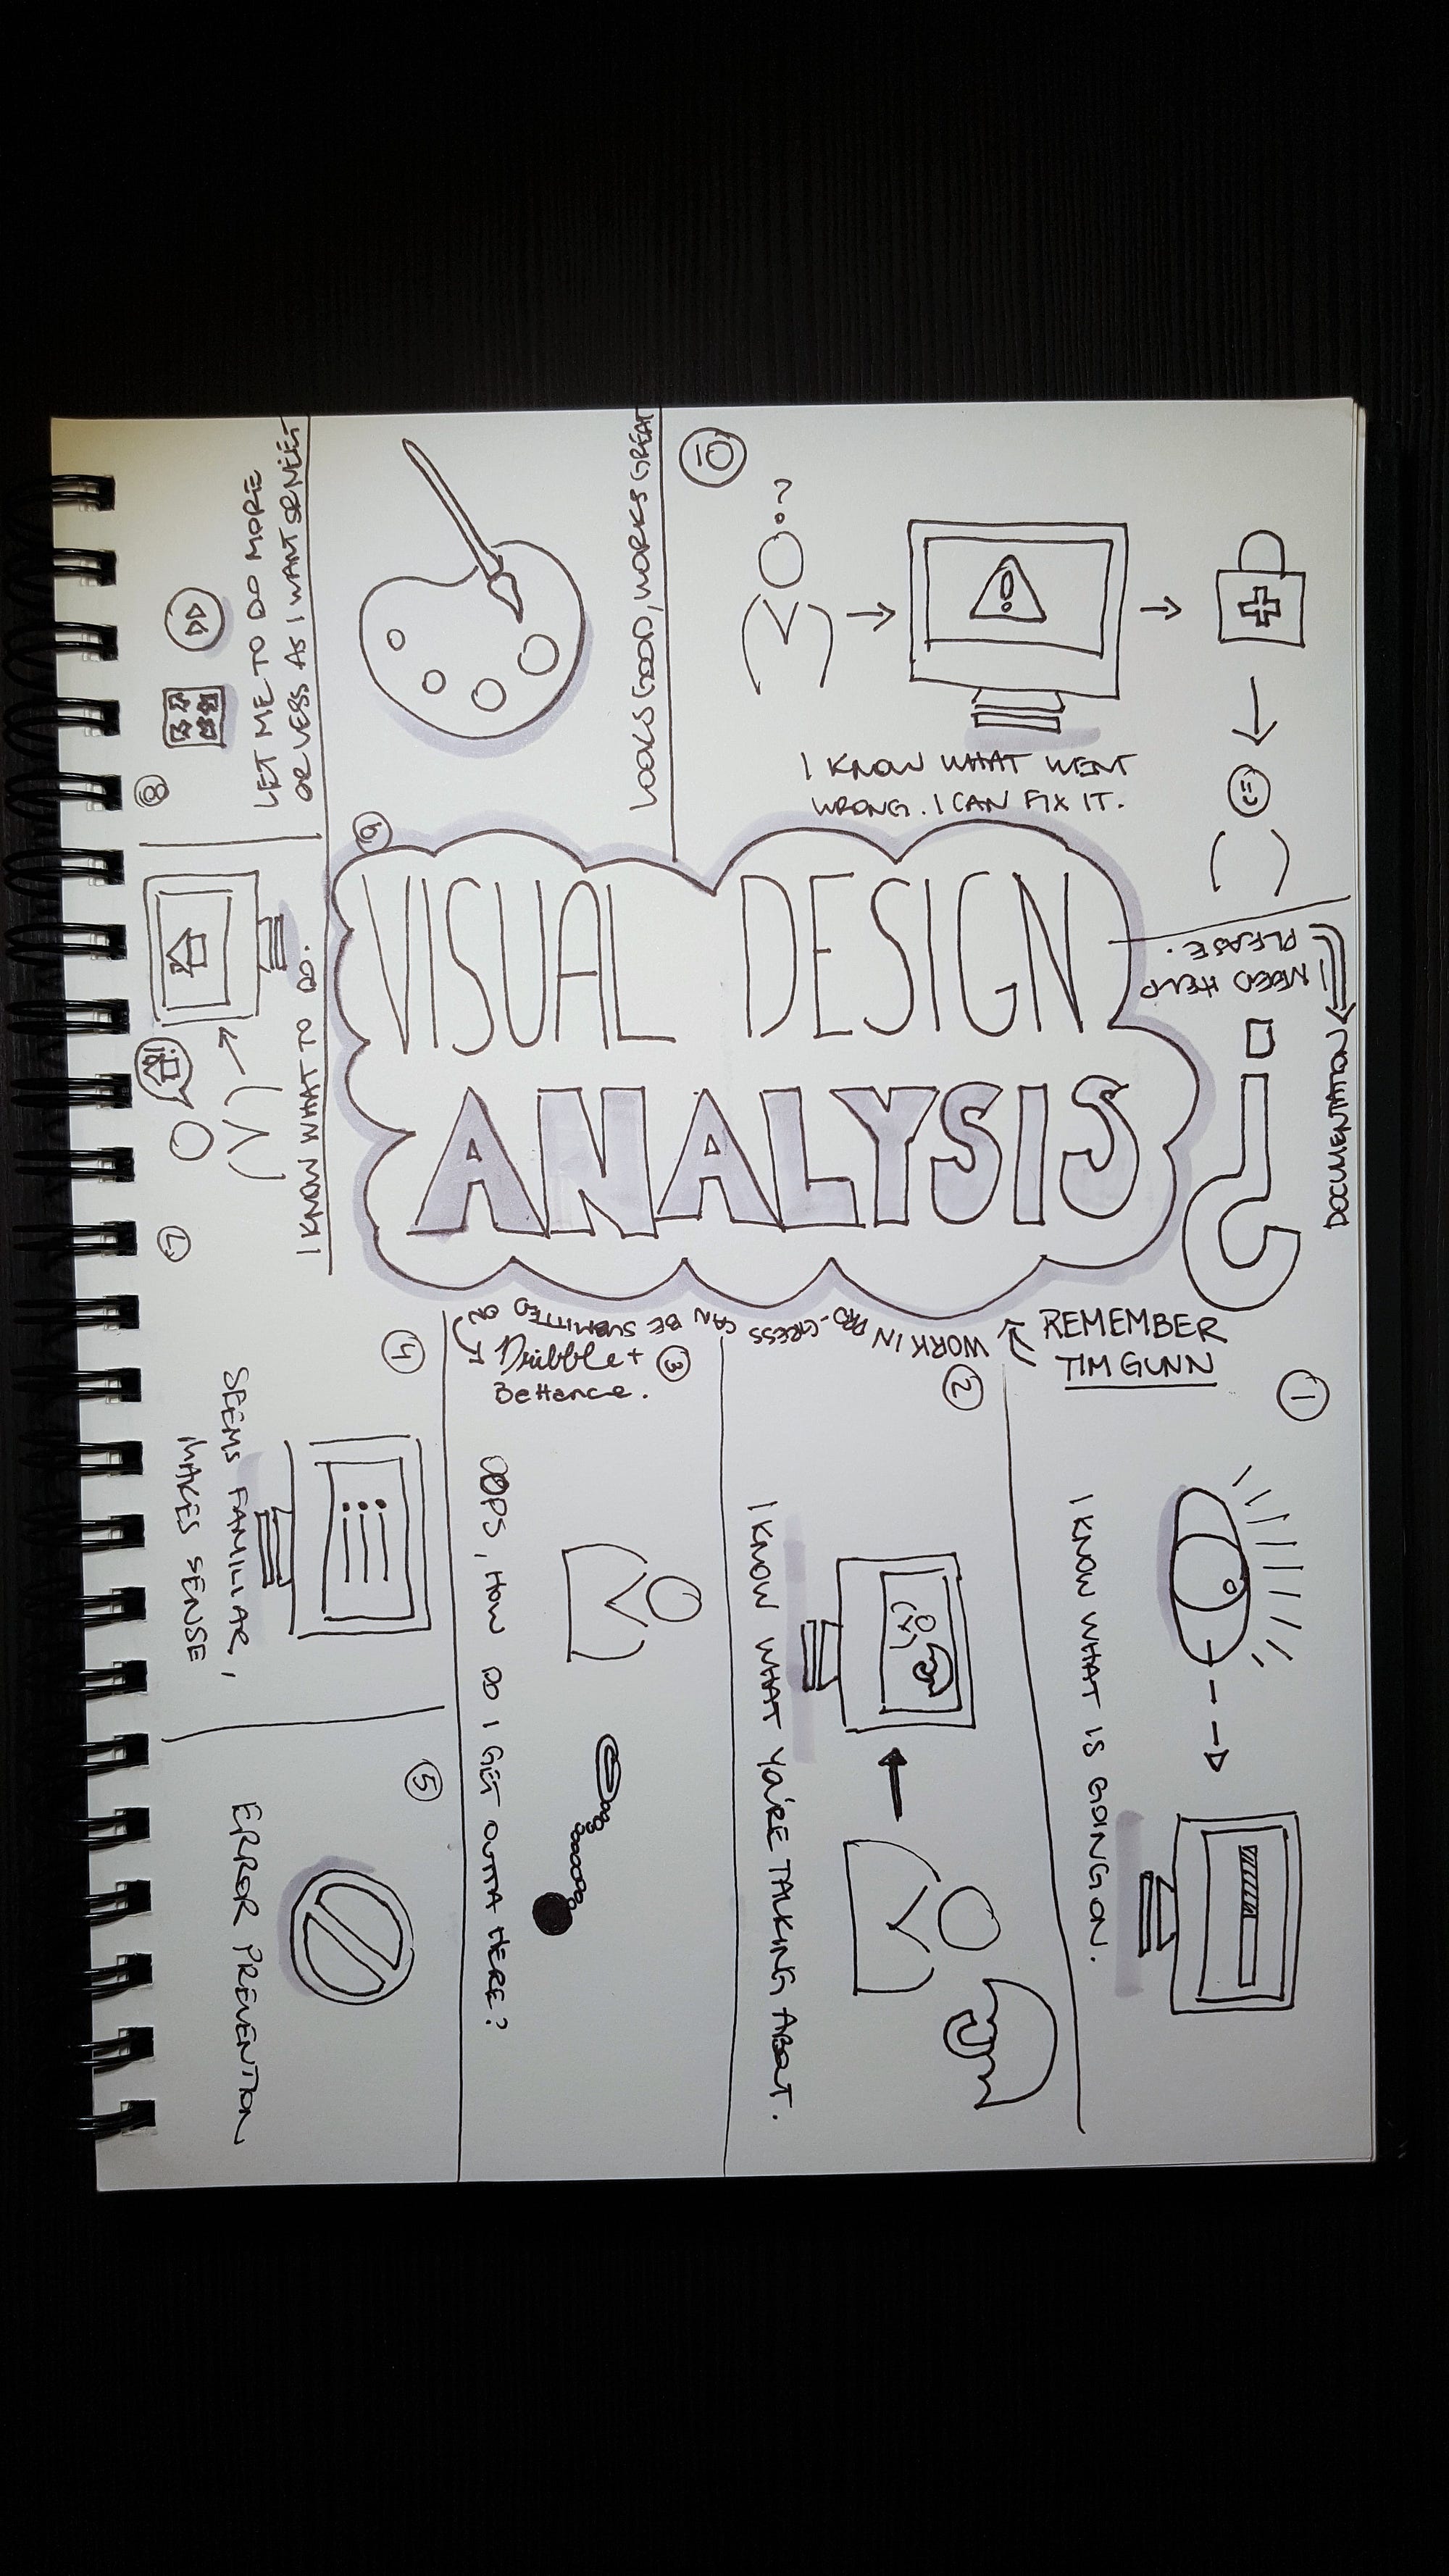 VISUAL DESIGN
ANALYSIS
REMEMBER
TIM GUNN
WORK IN PRO-GRESS CAN BE SUBMITTED ON
Dribble +
Behance.
1
I KNOW WHAT IS GOING ON.
2
I KNOW WHAT YOU'RE TALKING ABOUT.
3
OOPS, HOW DO I GET OUTTA HERE?
4
SEEMS FAMILIAR,
MAKES SENSE
5
ERROR PREVENTION
I KNOW WHAT TO DO.
8
LET ME TO DO MORE
OR LESS AS I WANT OR NEED
LOOKS GOOD, WORKS GREAT
10
?
!
I KNOW WHAT WENT
WRONG. I CAN FIX IT.
I NEED HELP
PLEASE.
DOCUMENTATION
?